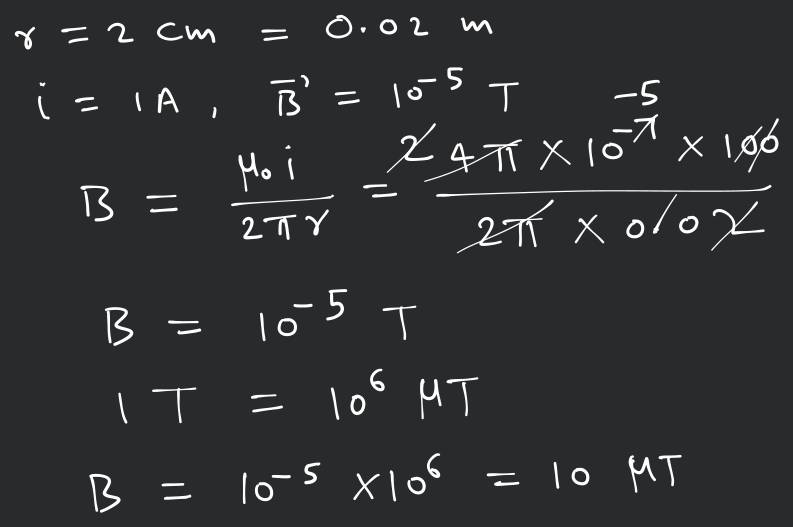 r = 2 cm = 0.02 m
i = 1A, B̅' = 10⁻⁵ T
B = μ₀ i / 2πr = 2 4π × 10⁻⁷ ⁻⁵ × 100 / 2π × 0.02
B = 10⁻⁵ T
1 T = 10⁶ μT
B = 10⁻⁵ × 10⁶ = 10 μT